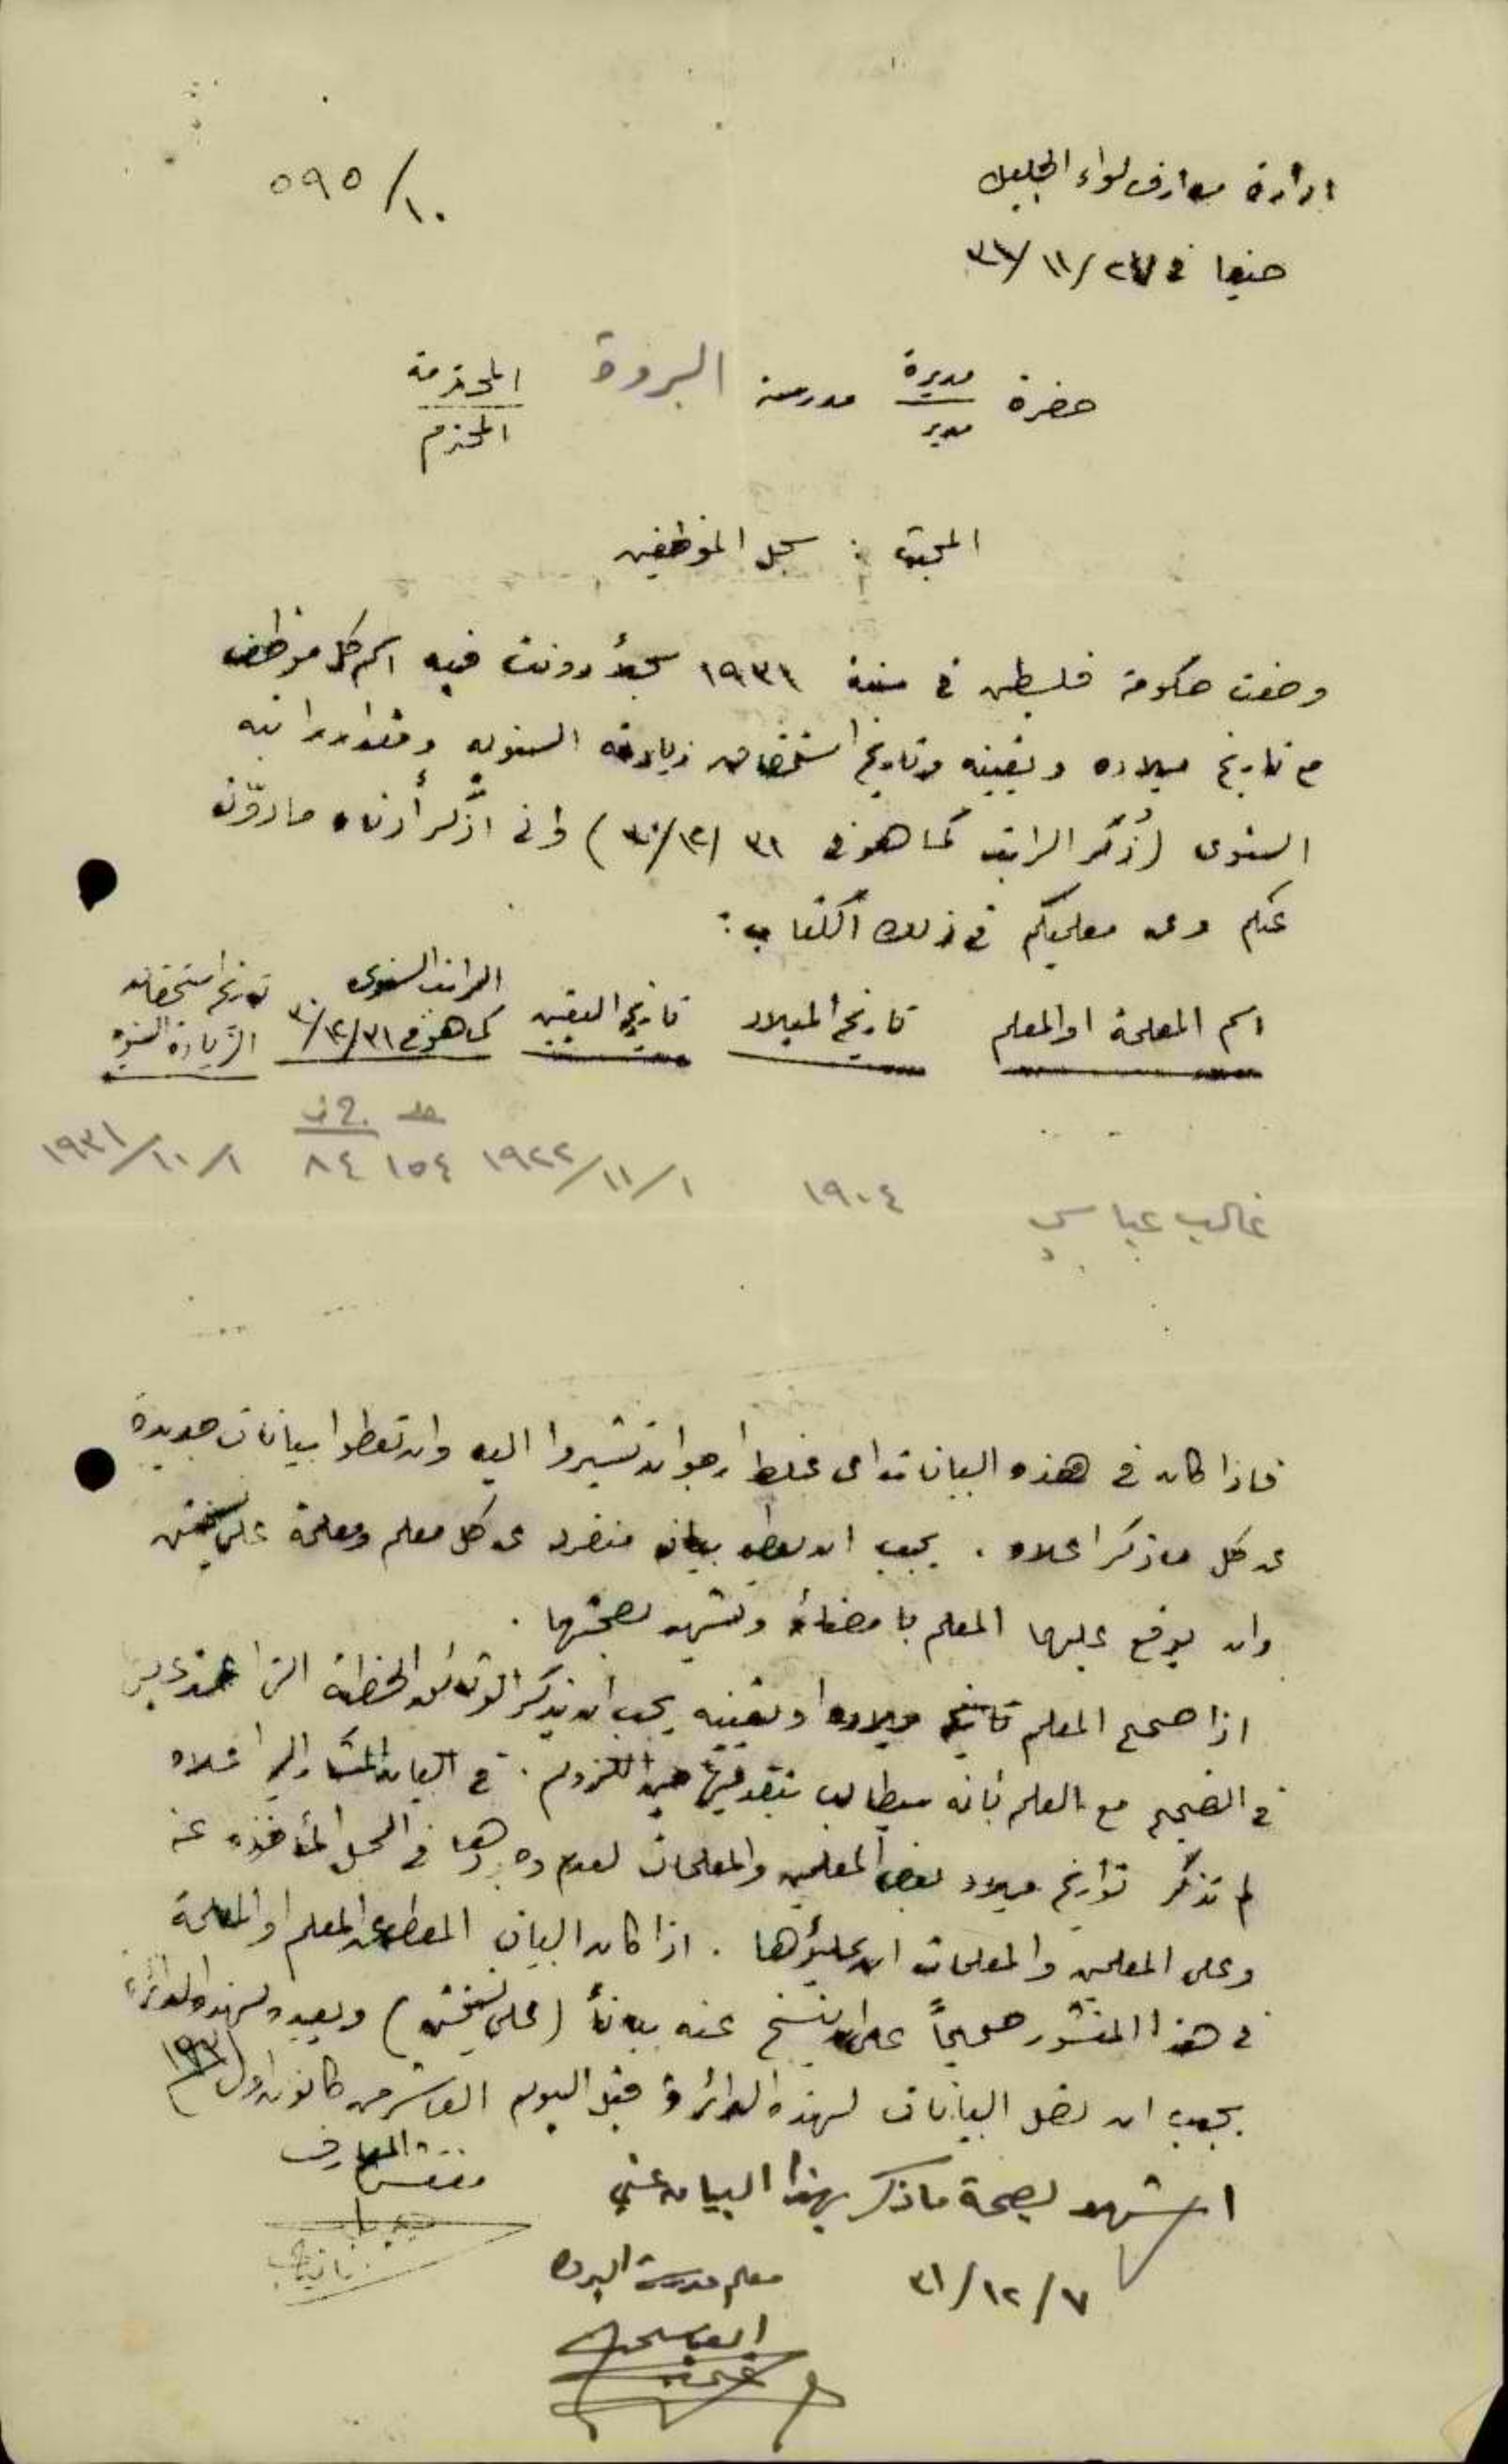 ادارة معارف لواء الجليل
٥٩٥/١٠
حيفا في ٢٧/١١/٣١
حضرة مديرة مدرسة البروة المحترمة
مدير المحترم
المبحث : سجل الموظفين
وضعت حكومة فلسطين في سنة ١٩٣١ سجلاً دونت فيه اسم كل موظف
مع تاريخ ميلاده وتعيينه وتاريخ استحقاق زيادته السنويه ومقدار راتبه
السنوى (ذُكر الراتب كما هو في ٣١/١٢/٣٠) واني اذكر أدناه ما دوّن
عنكم وعن معلميكم في ذلك الكتاب :
اسم المعلمة او المعلم
تاريخ الميلاد
تاريخ التعيين
الراتب السنوى
كما هو في ٣١/١٢/٣٠
تاريخ استحقاق
الزيادة السنويه
غالب عباسي
١٩٠٤
١/١١/١٩٢٢
١٥٤ ٨٤
١/١٠/١٩٣١
فاذا كان في هذه البيانات اى غلط ارجو ان تشيروا اليه وان تعطوا بيانات جديدة
عن كل ما ذكر اعلاه . يجب ان يعطى بيان منفرد عن كل معلم ومعلمة على نسختين
وان يوقع عليها المعلم بامضائه وتشهد بصحتها .
اذا صحح المعلم تاريخ ميلاده او تعيينه يجب ان يذكر الوثائق الخطية التى اعتمد عليها
في التصحيح مع العلم بانه سيطالب بتقديمها حين اللزوم . في البيان المشار اليه اعلاه
لم تذكر تواريخ ميلاد بعض المعلمين والمعلمات لعدم وجودها في السجل المأخوذه عنه
وعلى المعلمين والمعلمات ان يملؤها . اذا كان البيان المعطى عن المعلم او المعلمة
في هذا المنشور صحيحاً على ان ينسخ عنه بياناً (على نسختين) ويعيده لهذه الدائرة
يجب ان تصل البيانات لهذه الدائرة قبل اليوم العاشر من كانون اول ١٩٣١
مفتش المعارف
اشهد بصحة ما ذكر بهذا البيان عني
٧/١٢/٣١
معلم مدرسة البروه